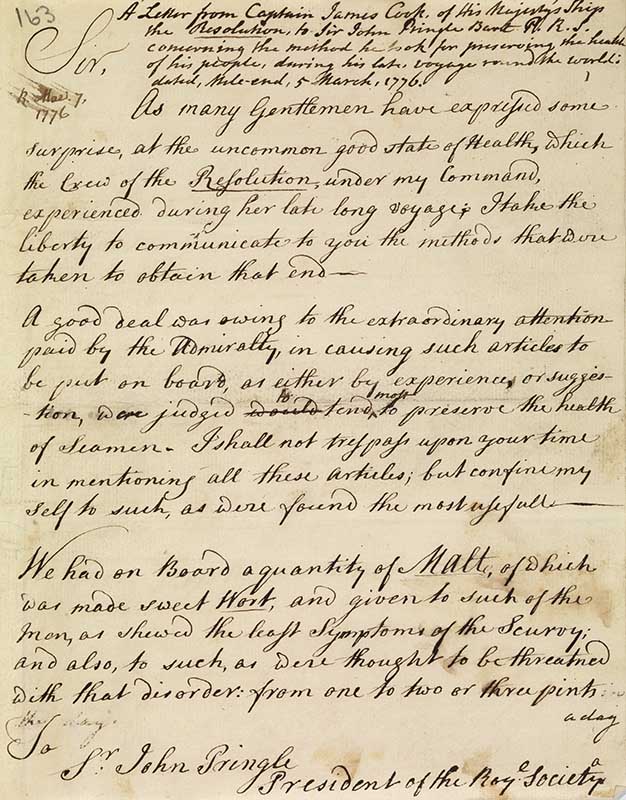 163
A Letter from Captain James Cook, of His Majesty's Ship
the Resolution, to Sir John Pringle Bart. P. R. S.
concerning the method he took for preserving the health
of his people, during his late voyage round the world:
dated, Mile-end, 5 March, 1776.
Sir,
R. Mar. 7.
1776
As many Gentlemen have expressed some
surprise, at the uncommon good state of Health, which
the Crew of the Resolution, under my Command,
experienced during her late long voyage; I take the
liberty to communicate to you the methods that were
taken to obtain that end—
A good deal was owing to the extraordinary attention
paid by the Admiralty, in causing such articles to
be put on board, as either by experience, or sugges-
-tion, were judged would to tend most to preserve the health
of Seamen. I shall not trespass upon your time
in mentioning all these articles; but confine my
self to such, as were found the most usefull—
We had on Board a quantity of Malt, of which
was made sweet Wort, and given to such of the
Men, as shewed the least Symptoms of the Scurvy;
and also, to such, as were thought to be threatned
with that disorder: from one to two or three pints
a day
To
Sr. John Pringle
President of the Roy.l Society